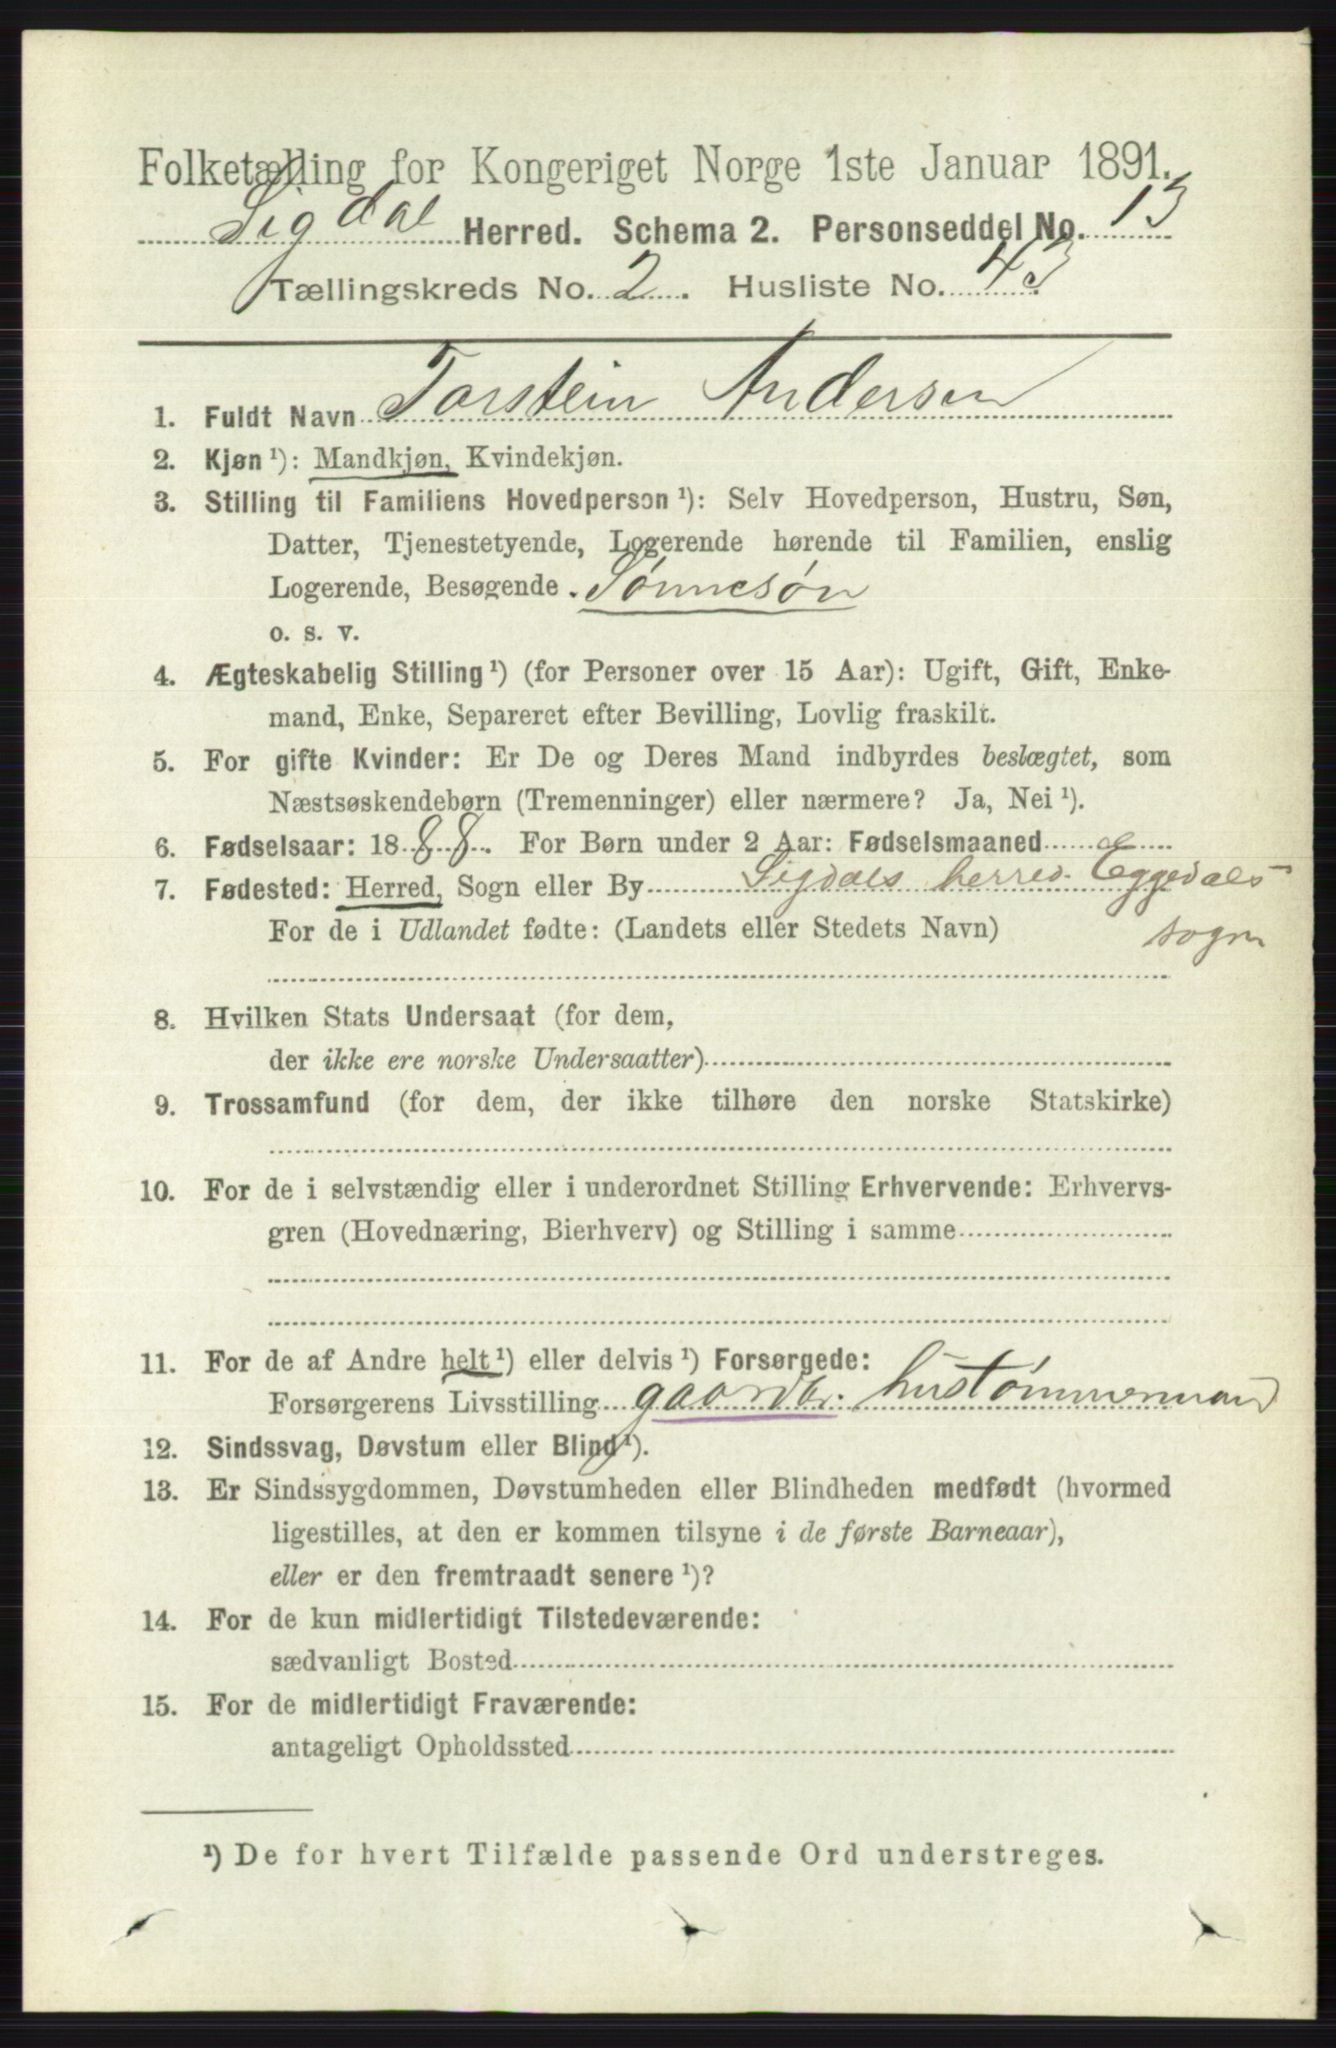 Folketælling for Kongeriget Norge 1ste Januar 1891.
Sigdal Herred. Schema 2. Personseddel No. 13
Tællingskreds No. 2. Husliste No. 43
1. Fuldt Navn Torstein Andersen
2. Kjøn ¹): Mandkjøn, Kvindekjøn.
3. Stilling til Familiens Hovedperson ¹): Selv Hovedperson, Hustru, Søn,
Datter, Tjenestetyende, Logerende hørende til Familien, enslig
Logerende, Besøgende . Sønnesøn
o. s. v.
4. Ægteskabelig Stilling ¹) (for Personer over 15 Aar): Ugift, Gift, Enke-
mand, Enke, Separeret efter Bevilling, Lovlig fraskilt.
5. For gifte Kvinder: Er De og Deres Mand indbyrdes beslægtet, som
Næstsøskendebørn (Tremenninger) eller nærmere? Ja, Nei ¹).
6. Fødselsaar: 1888. For Børn under 2 Aar: Fødselsmaaned
7. Fødested: Herred, Sogn eller By Sigdals herred. Eggedals
For de i Udlandet fødte: (Landets eller Stedets Navn) sogn
8. Hvilken Stats Undersaat (for dem,
der ikke ere norske Undersaatter)
9. Trossamfund (for dem, der ikke tilhøre den norske Statskirke)
10. For de i selvstændig eller i underordnet Stilling Erhvervende: Erhvervs-
gren (Hovednæring, Bierhverv) og Stilling i samme
11. For de af Andre helt ¹) eller delvis ¹) Forsørgede:
Forsørgerens Livsstilling gaardbr. hustømmermand
12. Sindssvag, Døvstum eller Blind ¹).
13. Er Sindssygdommen, Døvstumheden eller Blindheden medfødt (hvormed
ligestilles, at den er kommen tilsyne i de første Barneaar),
eller er den fremtraadt senere ¹)?
14. For de kun midlertidigt Tilstedeværende:
sædvanligt Bosted
15. For de midlertidigt Fraværende:
antageligt Opholdssted
¹) De for hvert Tilfælde passende Ord understreges.